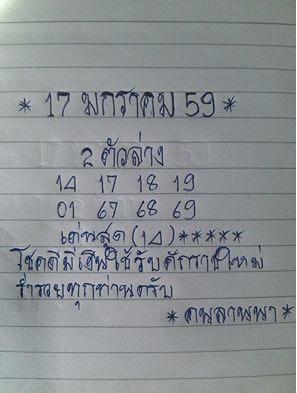 * 17 มกราคม 59 *
2 ตัวล่าง
14 17 18 19
01 67 68 69
เด่นสุด (14) *****
โชคดีมีเงินใช้รับศักราชใหม่
ร่ำรวยทุกท่านครับ
* คนลานนา *